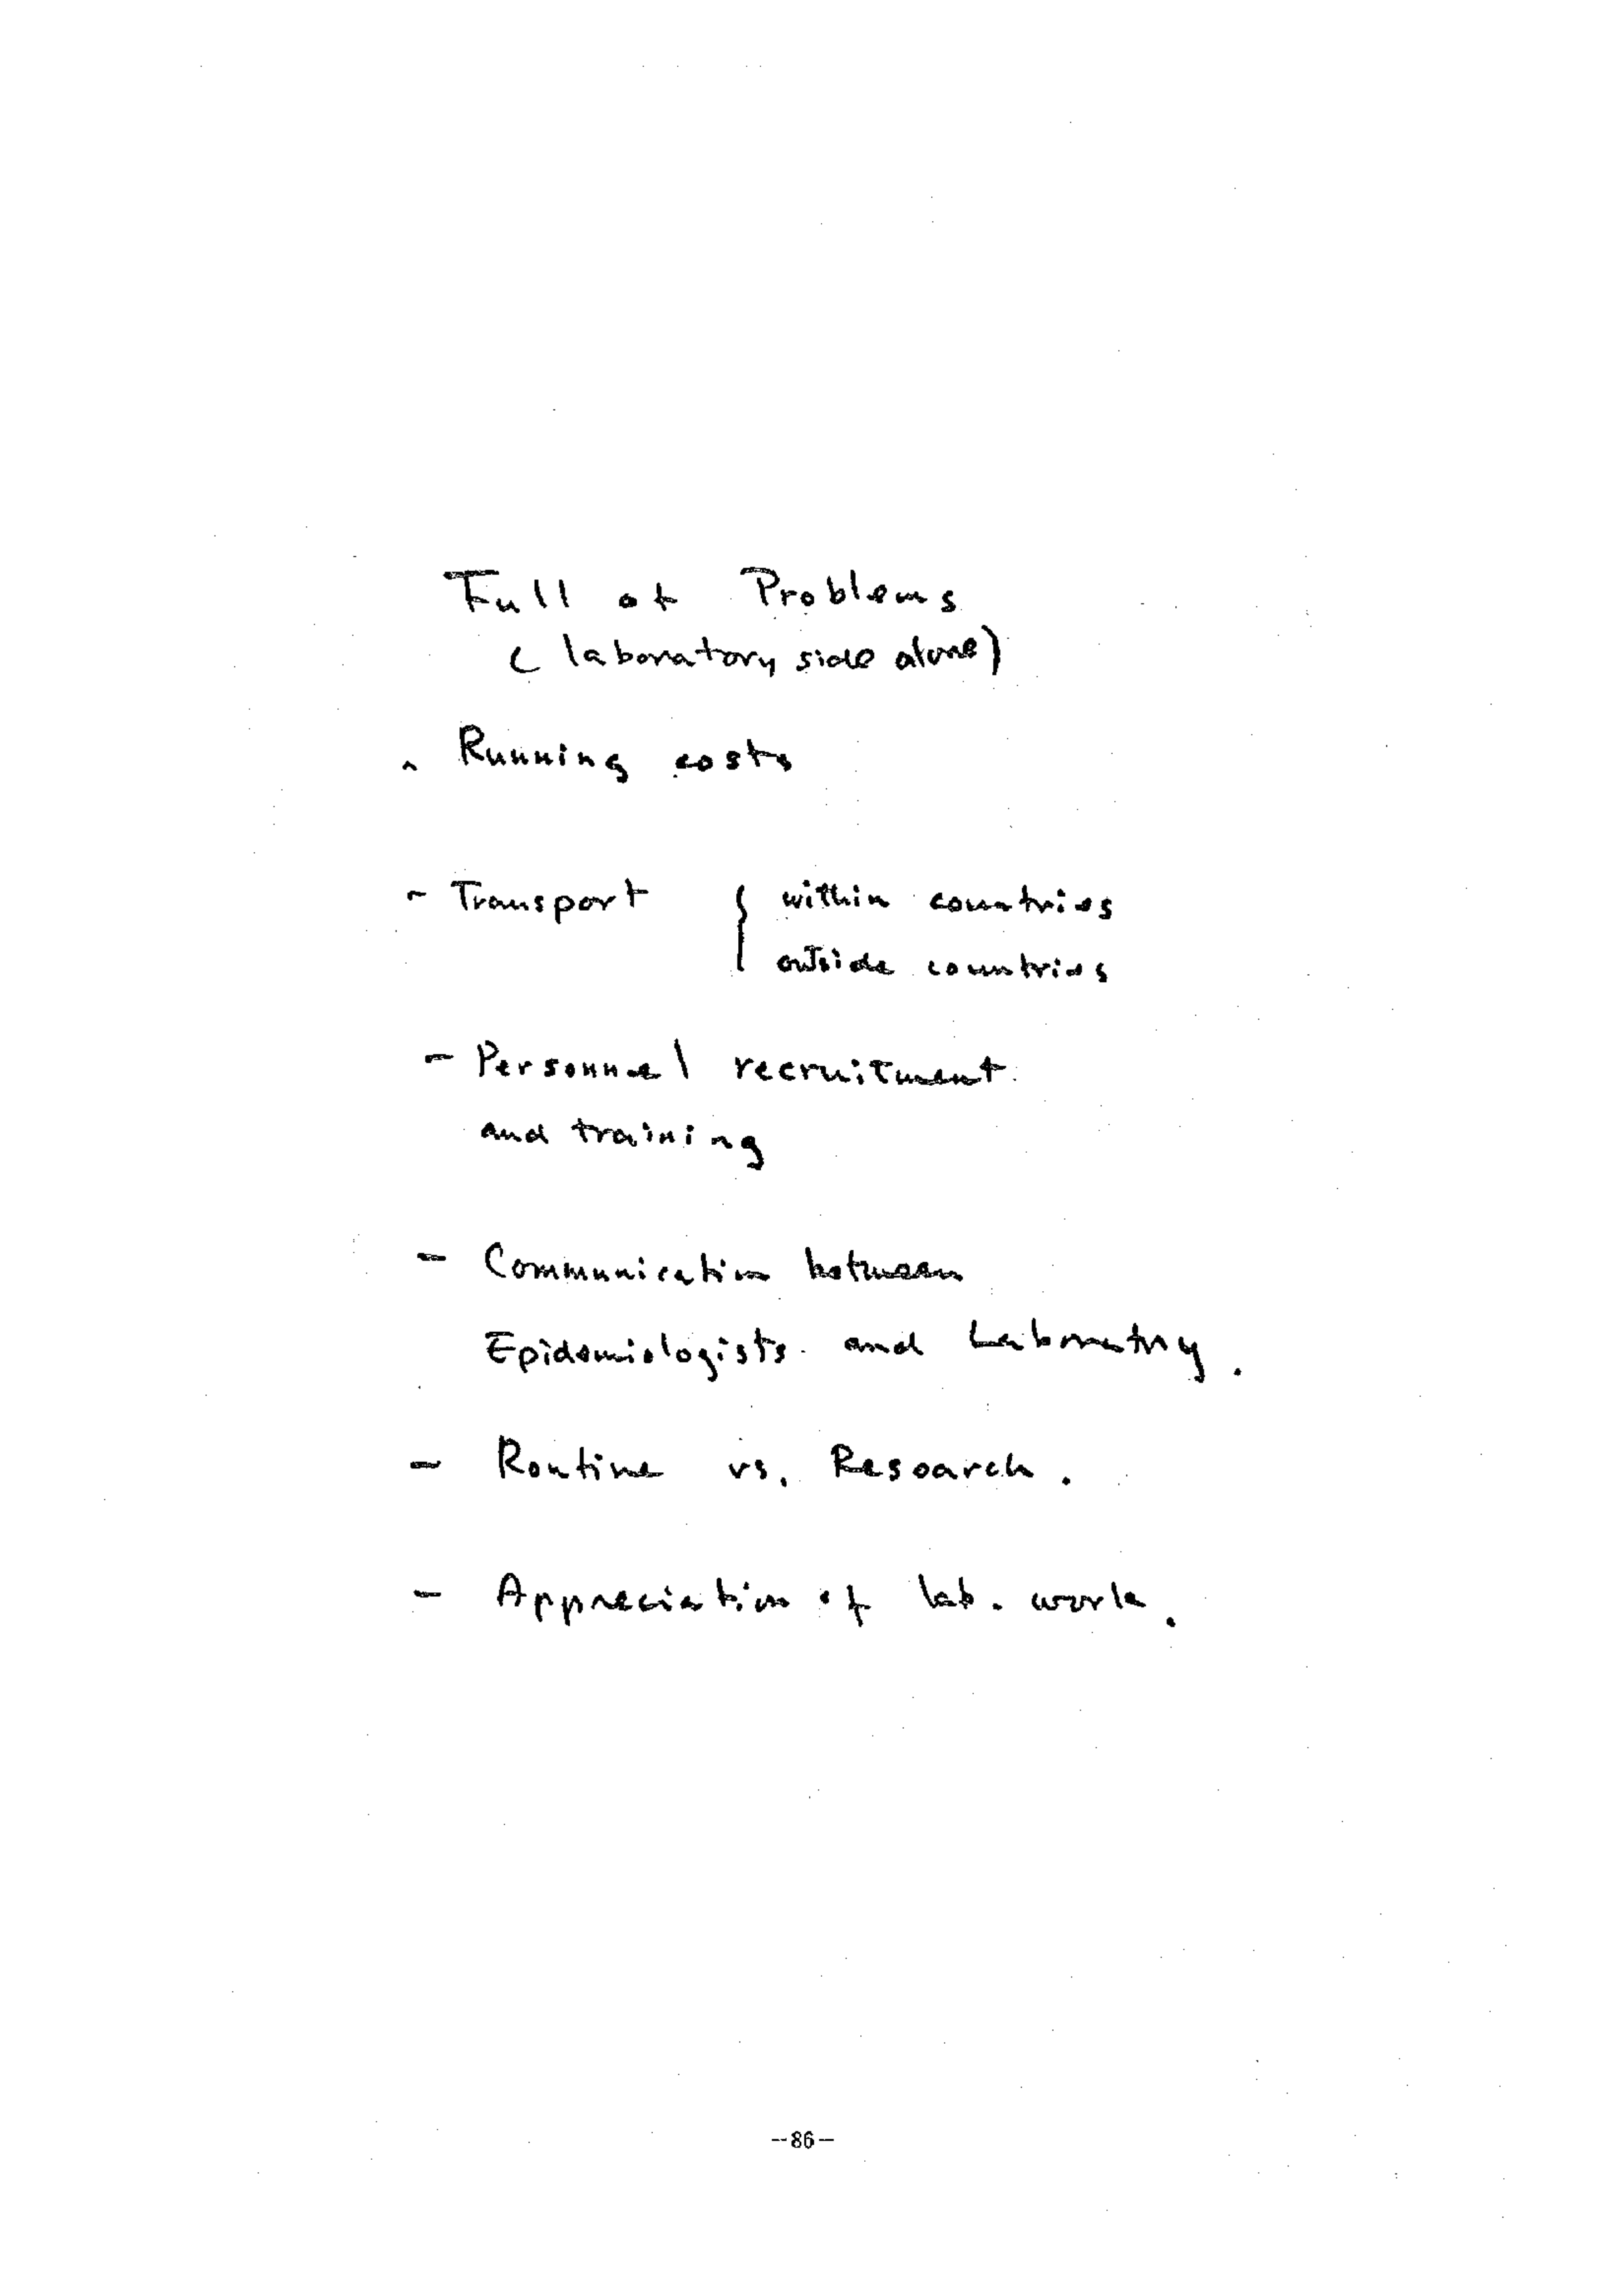 Full of Problems
(laboratory side alone)
- Running costs
- Transport { within countries
outside countries
- Personnel recruitment
and training
- Communication between
Epidemiologists and Laboratory.
- Routine vs. Research.
- Appreciation of lab. work.
--86--